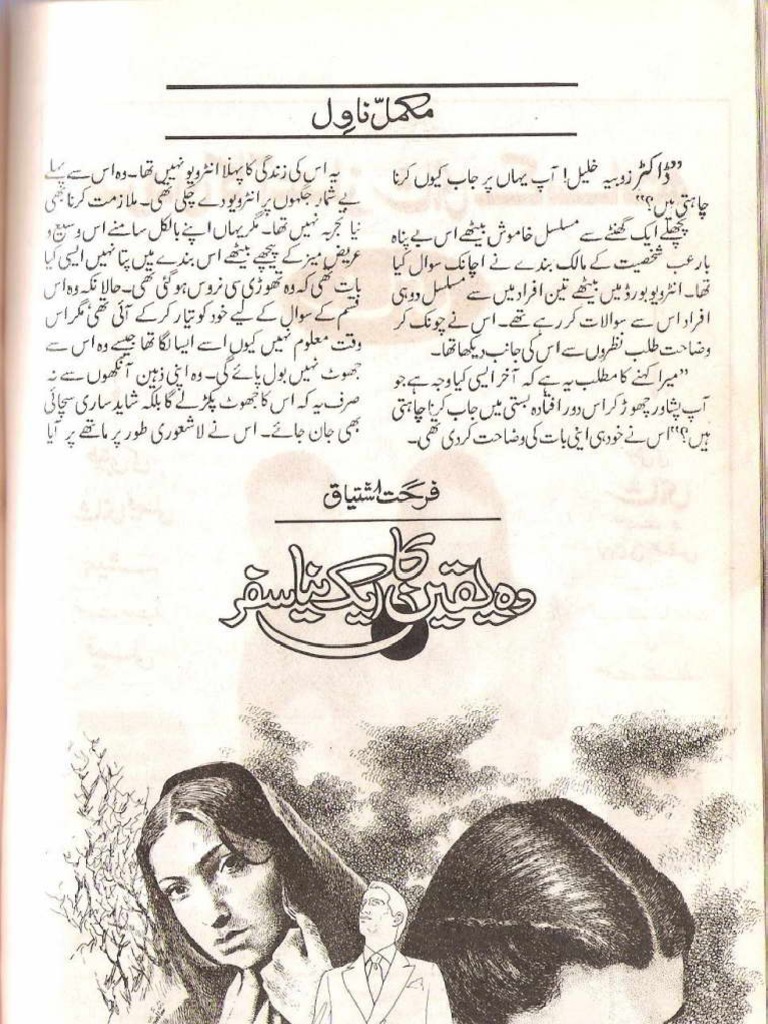 مکمل ناول
”ڈاکٹر زوبیہ خلیل! آپ یہاں پر جاب کیوں کرنا
چاہتی ہیں؟“
پچھلے ایک گھنٹے سے مسلسل خاموش بیٹھے اس بے پناہ
بارعب شخصیت کے مالک بندے نے اچانک سوال کیا
تھا۔ انٹرویو بورڈ میں بیٹھے تین افراد میں سے مسلسل دو ہی
افراد اس سے سوالات کر رہے تھے۔ اس نے چونک کر
وضاحت طلب نظروں سے اس کی جانب دیکھا تھا۔
”میرا کہنے کا مطلب یہ ہے کہ آخر ایسی کیا وجہ ہے جو
آپ پشاور چھوڑ کر اس دور افتادہ بستی میں جاب کرنا چاہتی
ہیں؟“ اس نے خود ہی اپنی بات کی وضاحت کر دی تھی۔
یہ اس کی زندگی کا پہلا انٹرویو نہیں تھا۔ وہ اس سے پہلے
بے شمار جگہوں پر انٹرویو دے چکی تھی۔ ملازمت کرنا بھی
نیا تجربہ نہیں تھا۔ مگر یہاں اپنے بالکل سامنے اس وسیع و
عریض میز کے پیچھے بیٹھے اس بندے میں پتا نہیں ایسی کیا
بات تھی کہ وہ تھوڑی سی نروس ہو گئی تھی۔ حالانکہ وہ اس
قسم کے سوال کے لیے خود کو تیار کر کے آئی تھی مگر اس
وقت معلوم نہیں کیوں اسے ایسا لگا تھا جیسے وہ اس سے
جھوٹ نہیں بول پائے گی۔ وہ اپنی ذہین آنکھوں سے نہ
صرف یہ کہ اس کا جھوٹ پکڑ لے گا بلکہ شاید ساری سچائی
بھی جان جائے۔ اس نے لاشعوری طور پر ماتھے پر آیا
فرحت اشتیاق
وہ یقین کا ایک نیا سفر